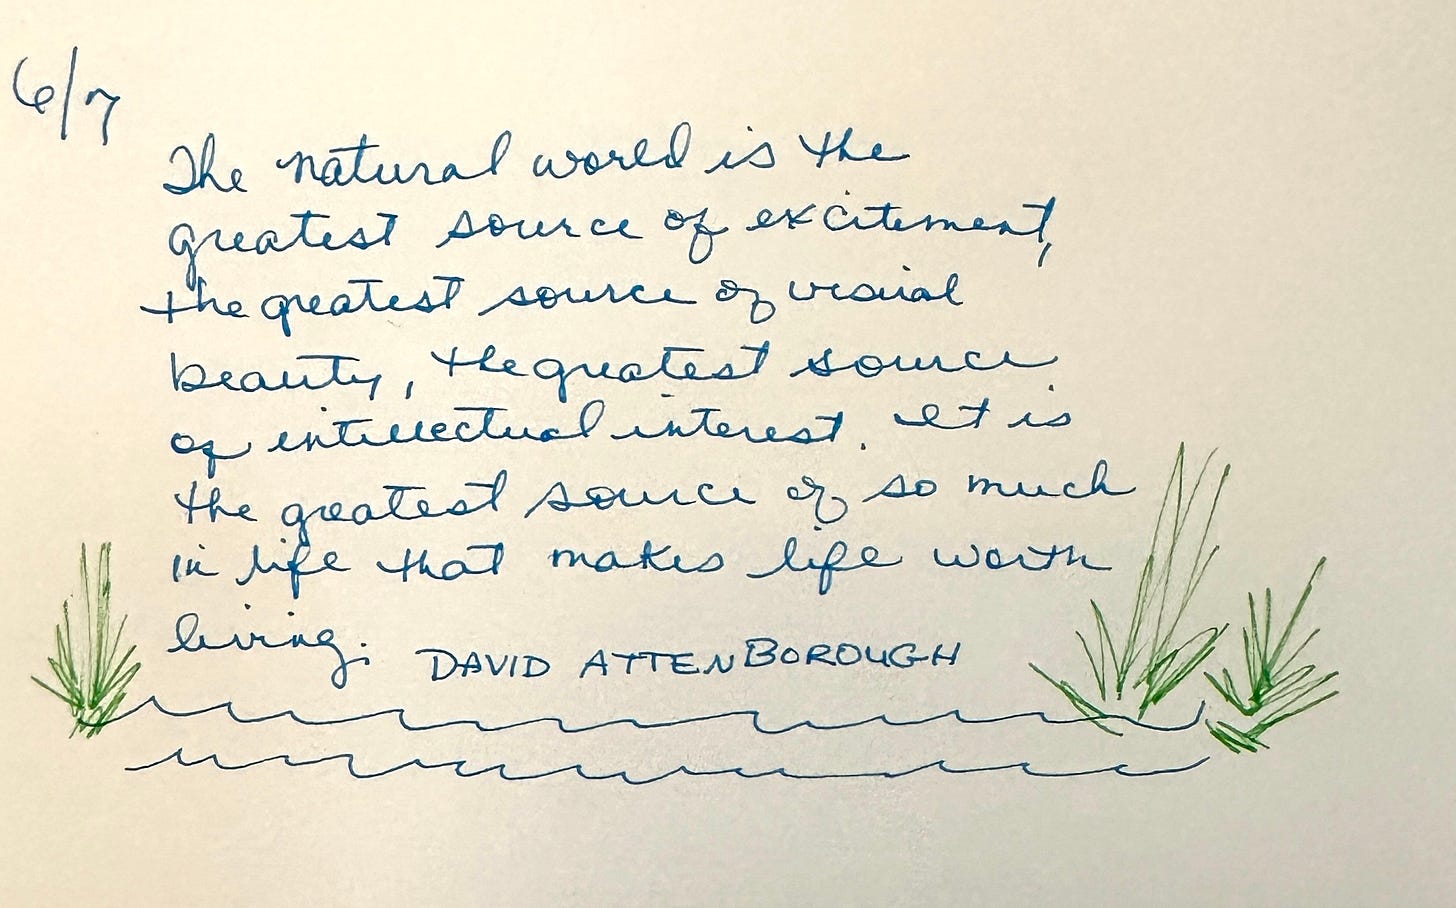 6/7
The natural world is the
greatest source of excitement,
the greatest source of visual
beauty, the greatest source
of intellectual interest. It is
the greatest source of so much
in life that makes life worth
living. DAVID ATTENBOROUGH